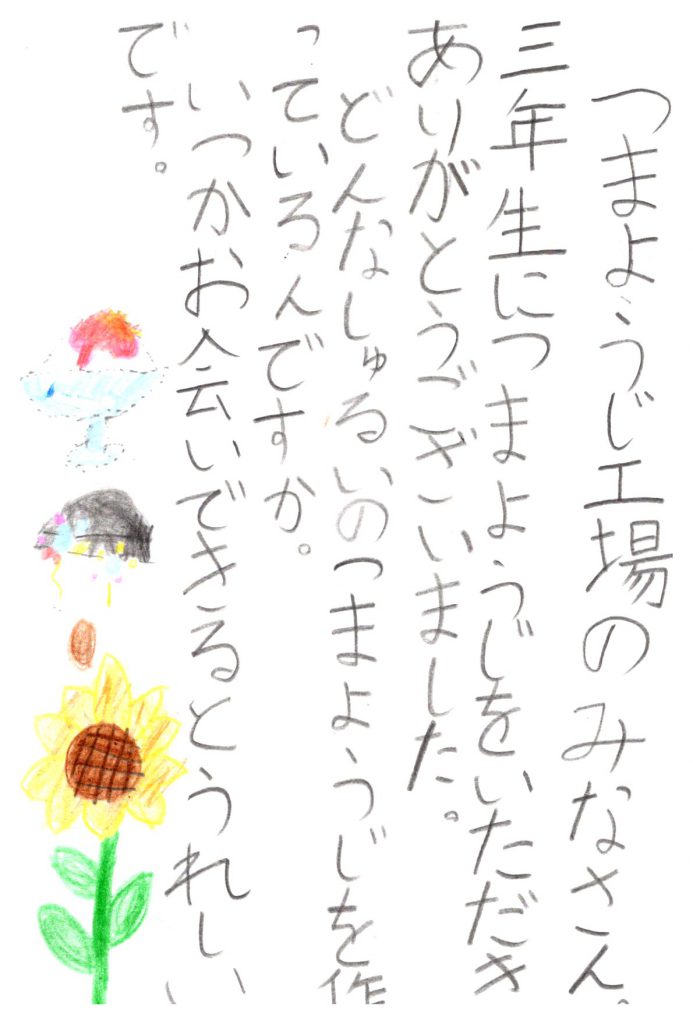 つまようじ工場のみなさん。
三年生につまようじをいただき
ありがとうございました。
どんなしゅるいのつまようじを作
っているんですか。
いつかお会いできるとうれしい
です。